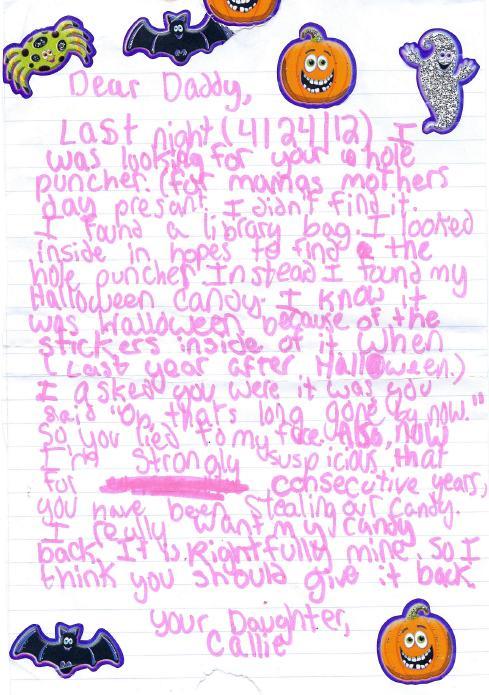 Dear Daddy,
Last night (4/24/12) I
was looking for your whole
puncher. (for mamas mothers
day presant. I didn't find it.
I found a library bag. I looked
inside in hopes to find the
hole puncher. Instead I found my
Halloween candy. I know it
was Halloween because of the
stickers inside of it. When
(Last year after Halloween.)
I asked you were it was you
said "Oh, that's long gone by now."
So you lied to my face. Also, now
I'm strongly suspicious that
for consecutive years,
you have been stealing our candy.
I really want my candy
back. It is rightfully mine. So I
think you should give it back.
Your Daughter,
Callie